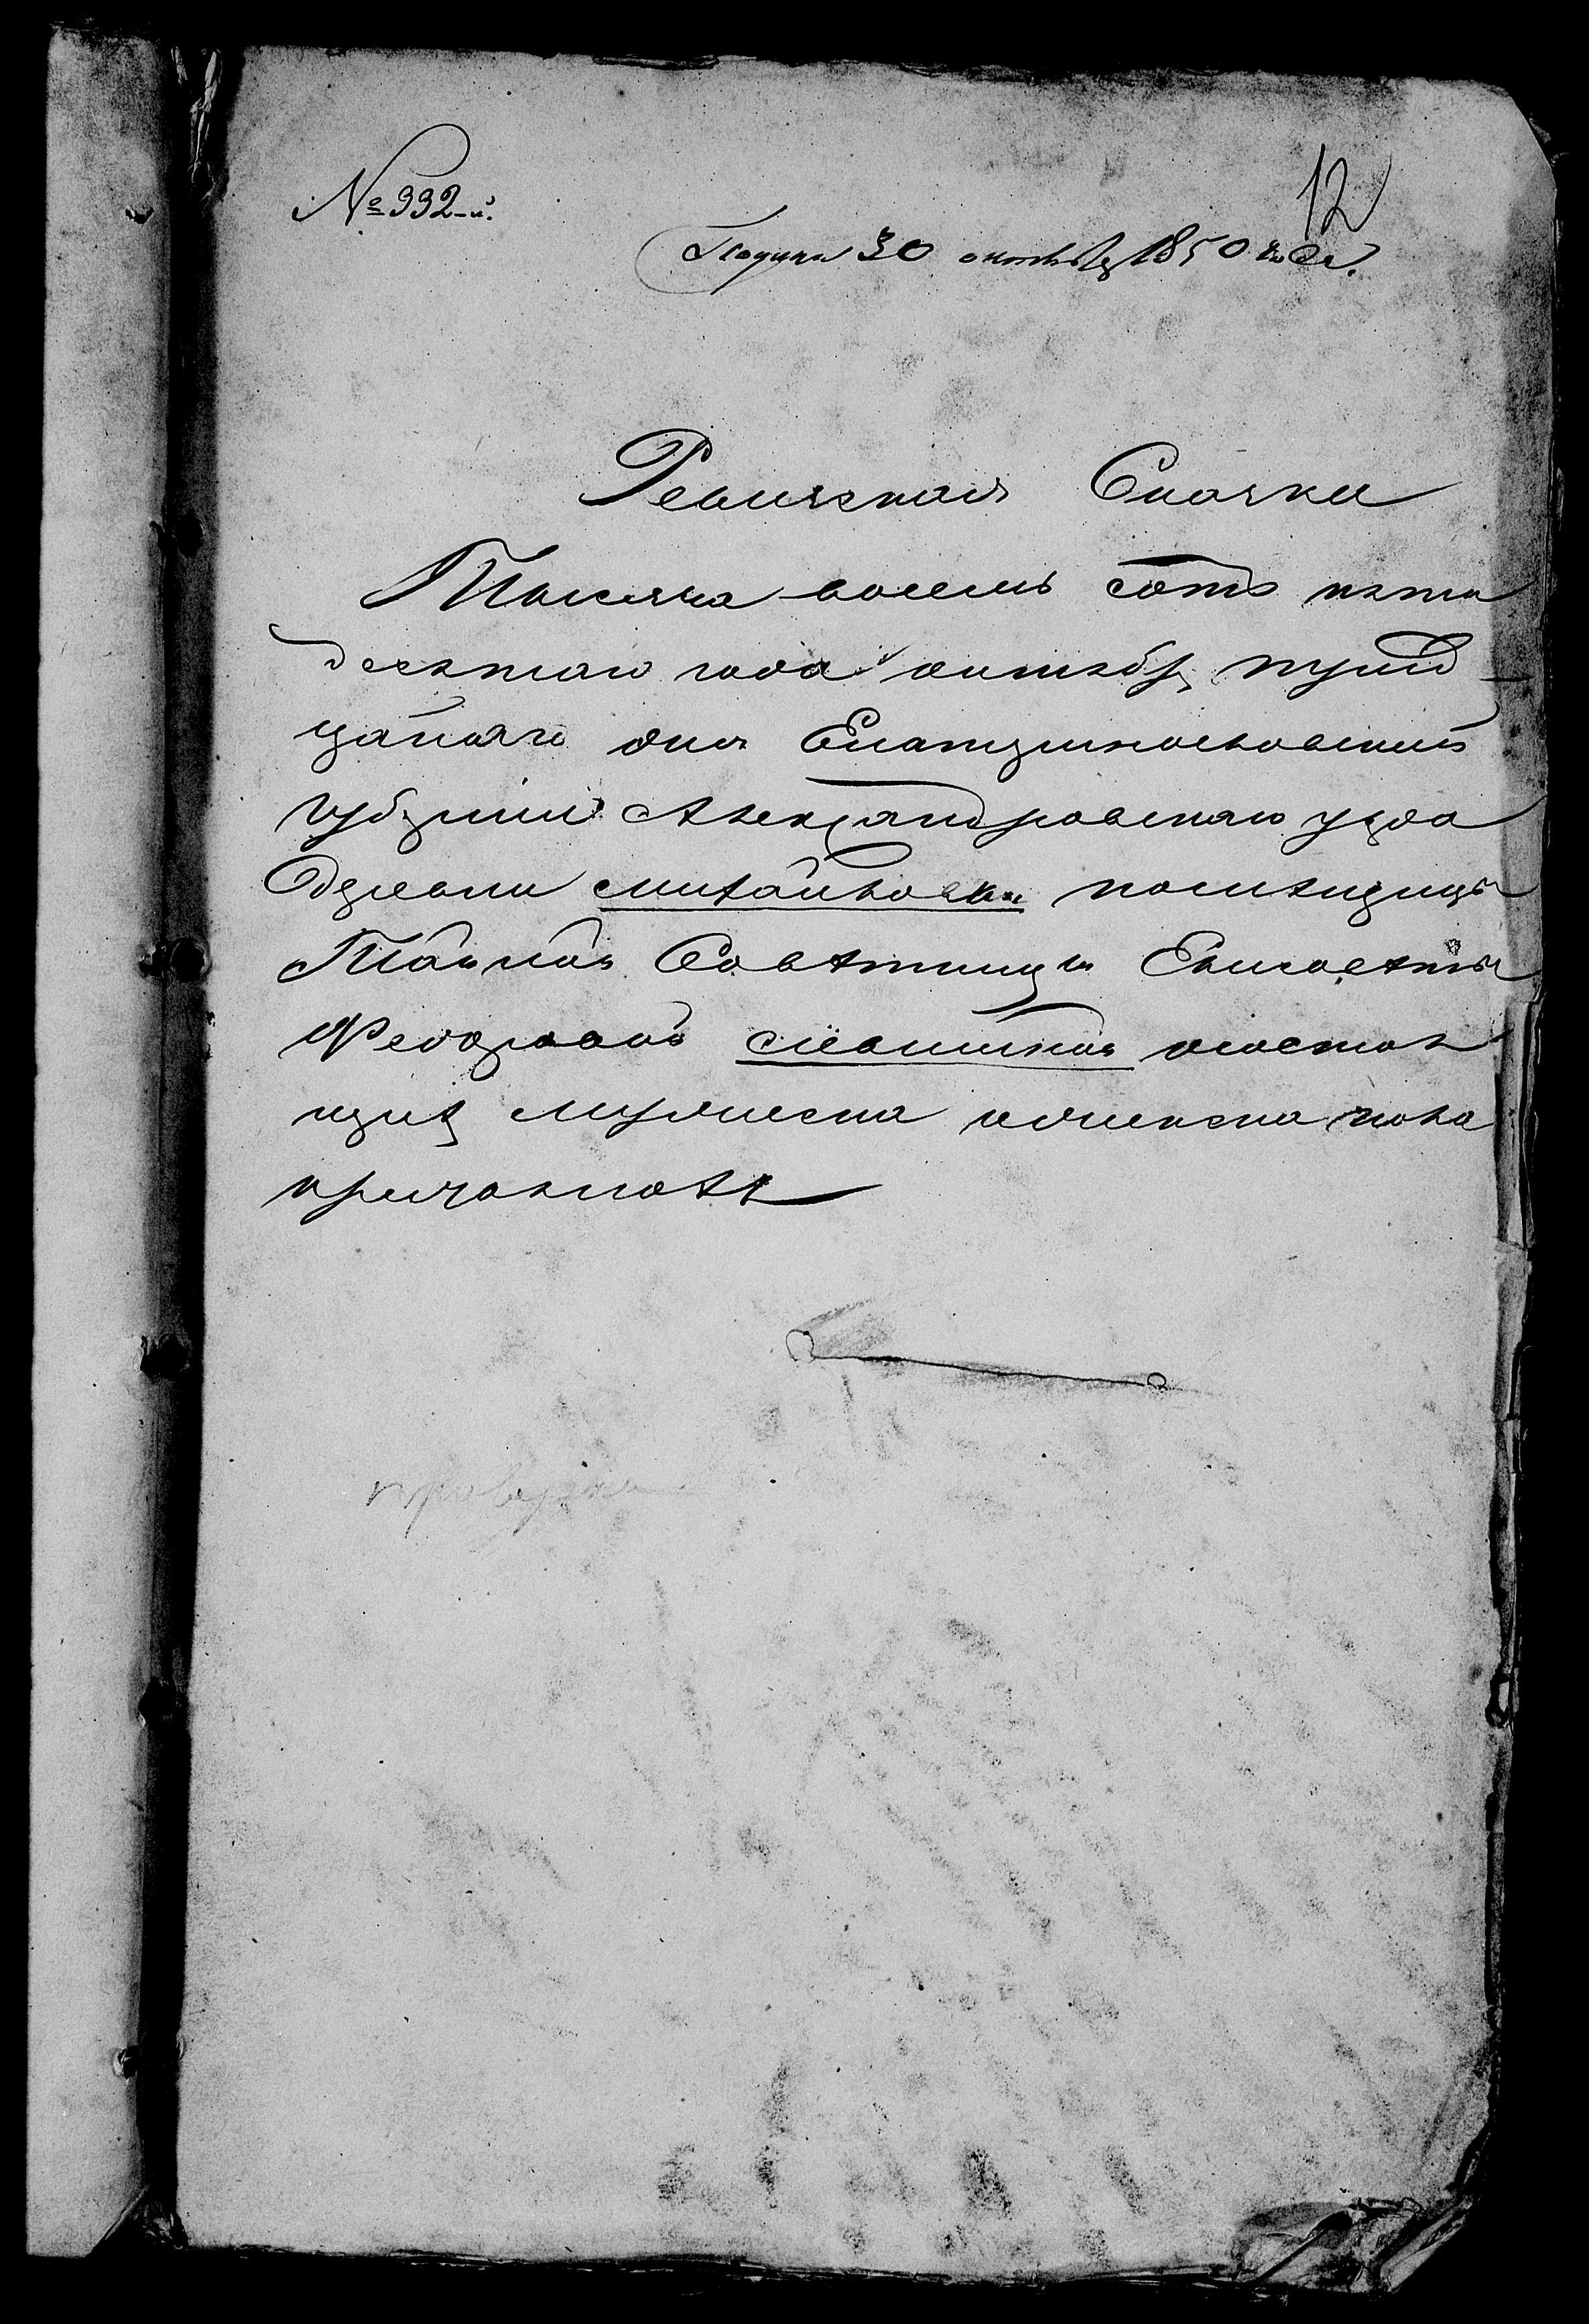 № 992-й.
12
Получена 30 октября 1850 года.
Ревизская Сказка
Тысяча восемь сотъ пяти
десятаго года октября трид
цатаго дня Екатеринославской
губерніи Александровского уезда
деревни Михайловки помещицы
Тайной Советницы Елисаветы
Федоровой состоя
щихъ мужеска и женска пола
крестьянахъ
проверена